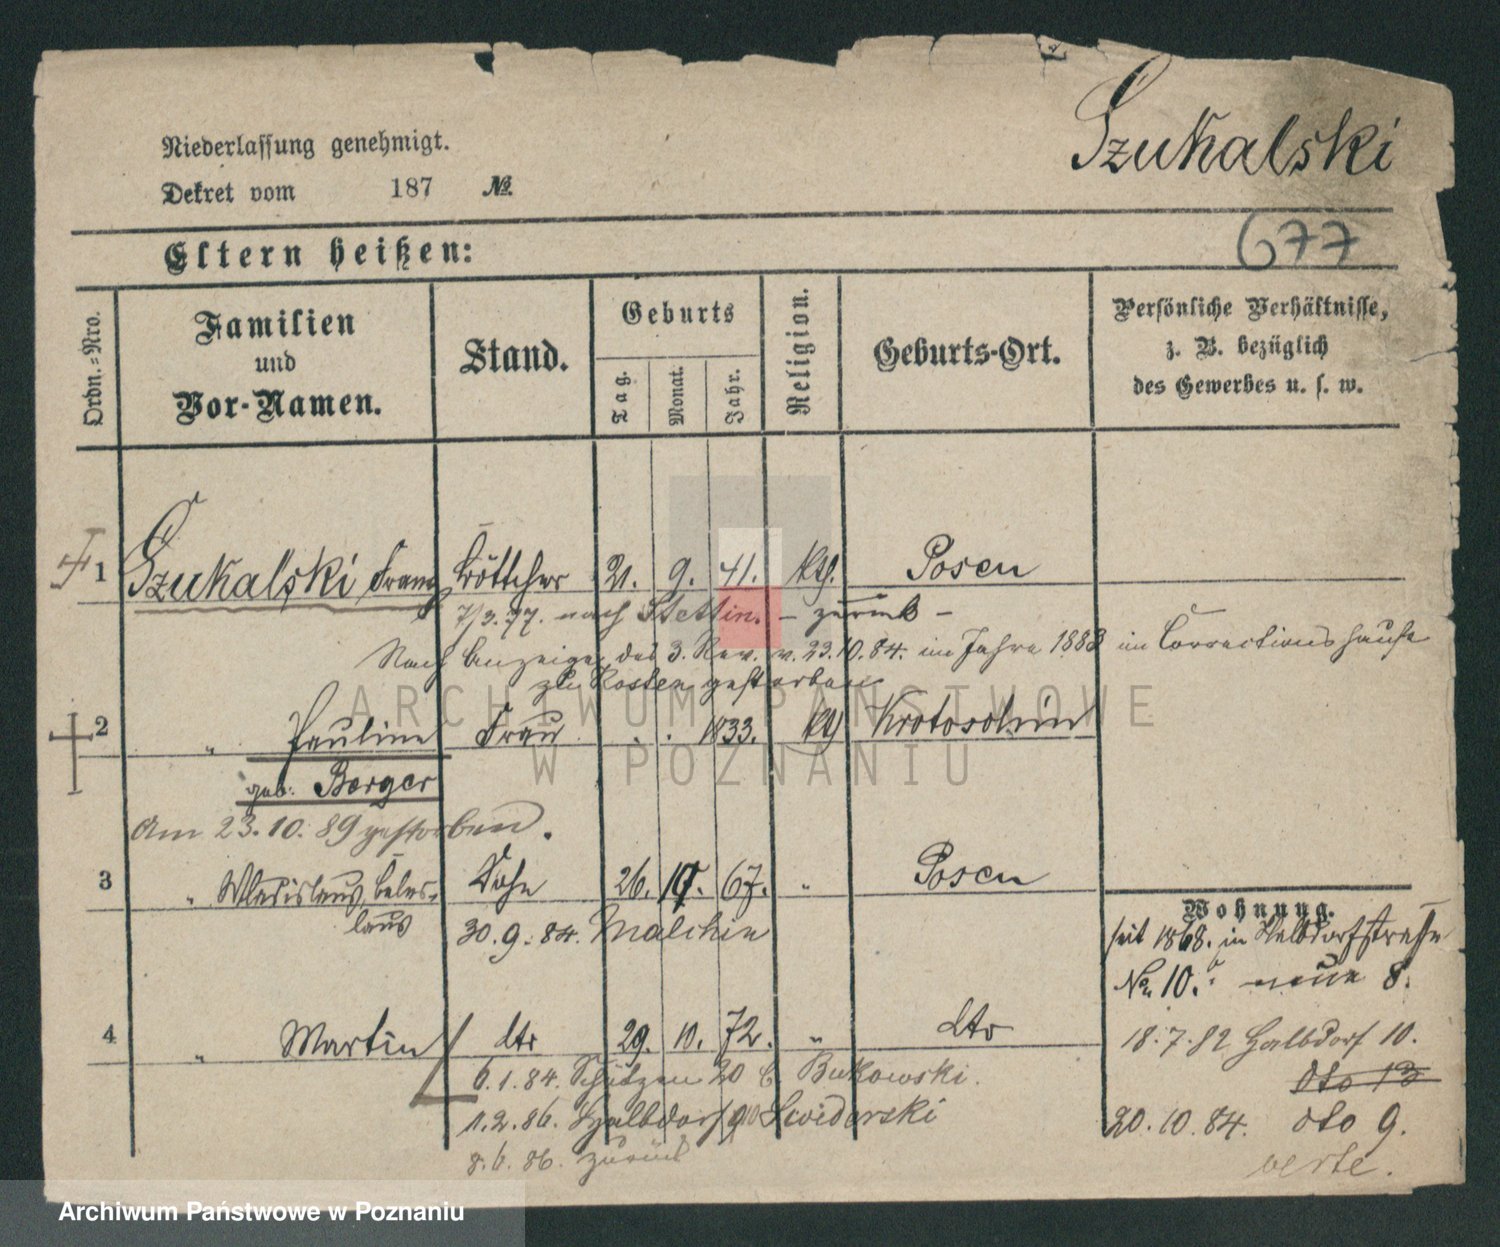 Szukalski
Niederlassung genehmigt.
Dekret vom 187 №.
677
Eltern heißen:
Ordn.-Nro.
Familien
und
Vor-Namen.
Stand.
Geburts
Tag.
Monat.
Jahr.
Religion.
Geburts-Ort.
Persönliche Verhältnisse,
z. B. bezüglich
des Gewerbes u. s. w.
1 Szukalski Franz Böttcher 21. 9. 41. kth. Posen
7/3.77. nach Stettin. – zurück –
Nach Anzeige des 3. Rev. v. 23.10.84. im Jahre 1883 im Correctionshause
zu Kosten gestorben
2 " Pauline Frau . . 1833. kth Krotoschin
geb. Berger
Am 23.10.89 gestorben.
3 " Wladislaus, Sohn 26. 67. " Posen
laus
30.9.84. Malchin
Wohnung.
seit 1868. in Halbdorfstrasse
No. 10. neue 8.
4 " Martin dto 29. 10. 72. " dto
18.7.82 Halbdorf 10.
6.1.84. Schützen 20 b. Bukowski.
dto 13
1.2.86. Halbdorf 9 Swiderski
20.10.84. dto 9.
8.6.86. zurück
verte.
ARCHIWUM PAŃSTWOWE
W POZNANIU
Archiwum Państwowe w Poznaniu